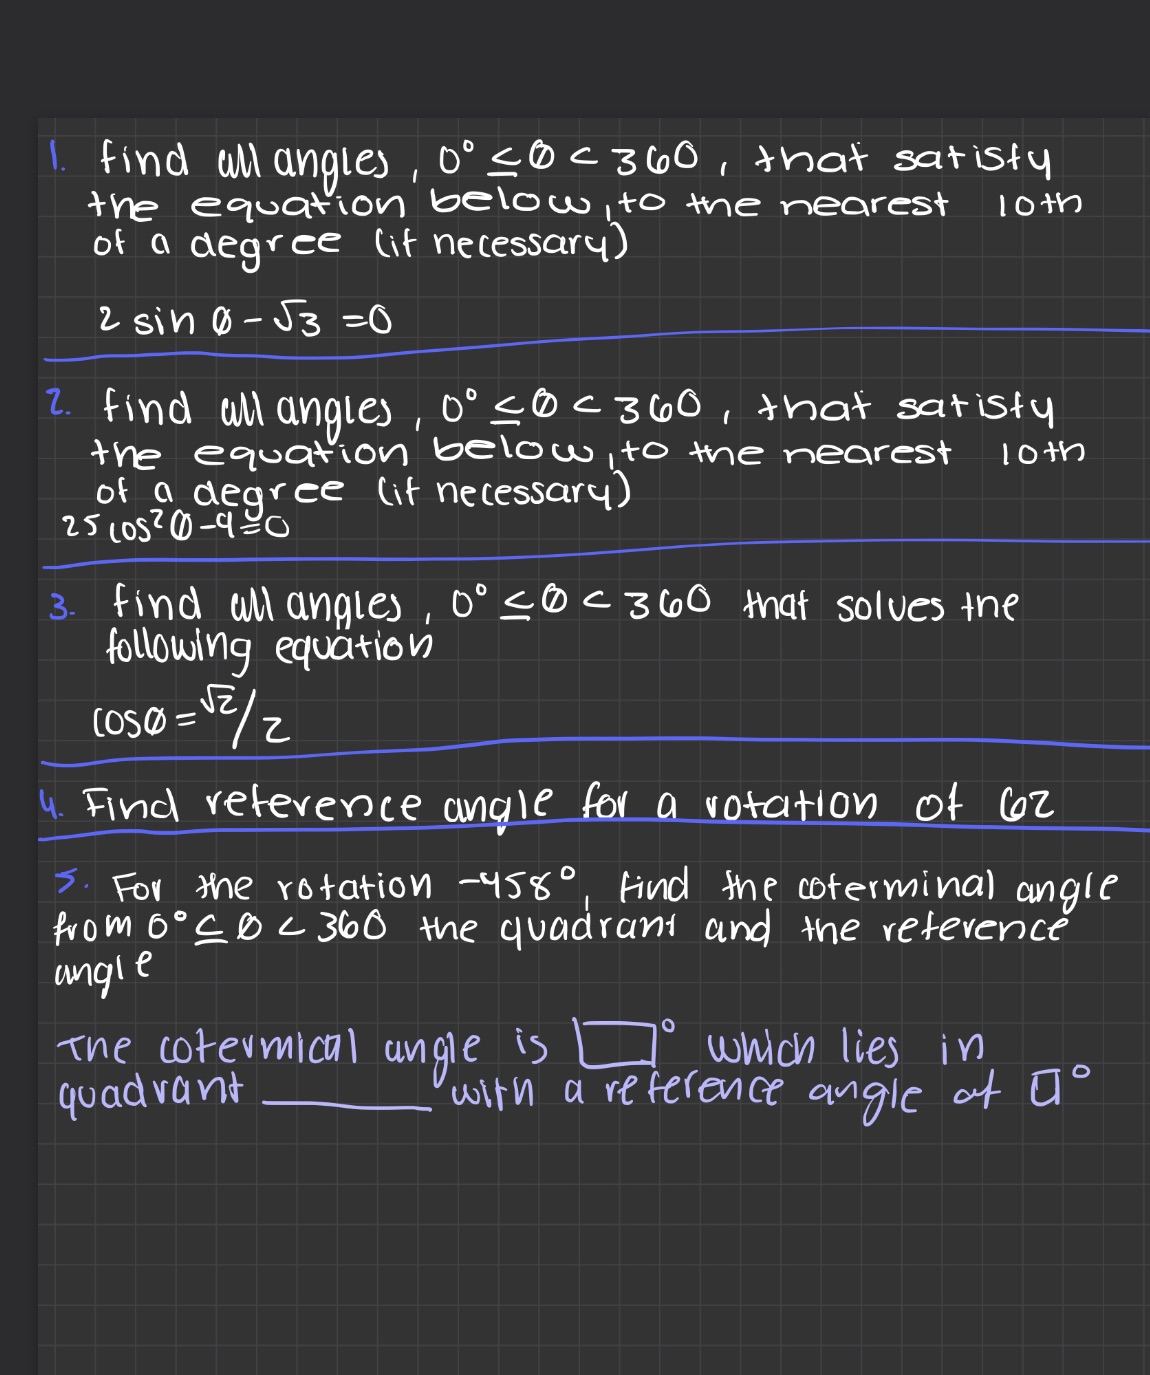 1. find all angles, 0° ≤ θ < 360, that satisfy
the equation below, to the nearest 10th
of a degree (if necessary)
2 sin θ - √3 = 0
2. find all angles, 0° ≤ θ < 360, that satisfy
the equation below, to the nearest 10th
of a degree (if necessary)
25 cos² θ - 9 = 0
3. find all angles, 0° ≤ θ < 360 that solves the
following equation
cos θ = √2/2
4. Find reference angle for a rotation of 62
5. For the rotation -458°, find the coterminal angle
from 0° ≤ θ < 360 the quadrant and the reference
angle
The cotermical angle is □° which lies in
quadrant ______ with a reference angle of □°